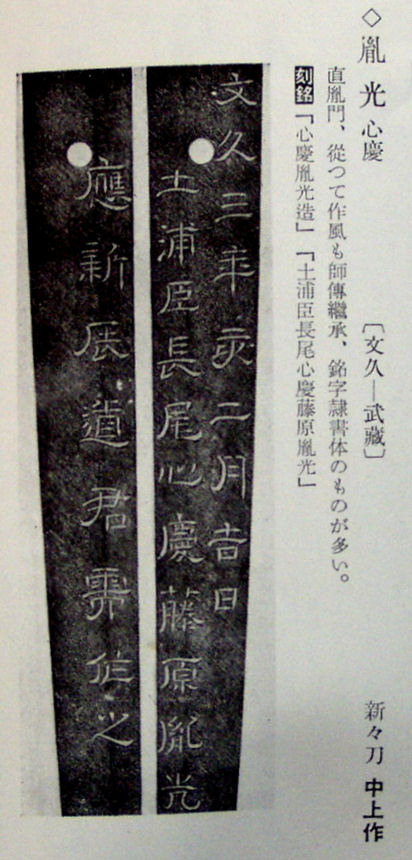 ◇胤光心慶 〔文久―武蔵〕 新々刀 中上作
直胤門、従つて作風も師傳繼承、銘字隷書体のものが多い。
刻銘「心慶胤光造」「土浦臣長尾心慶藤原胤光」
文久三年亥二月吉日
土浦臣長尾心慶藤原胤光
應新居道君需作之